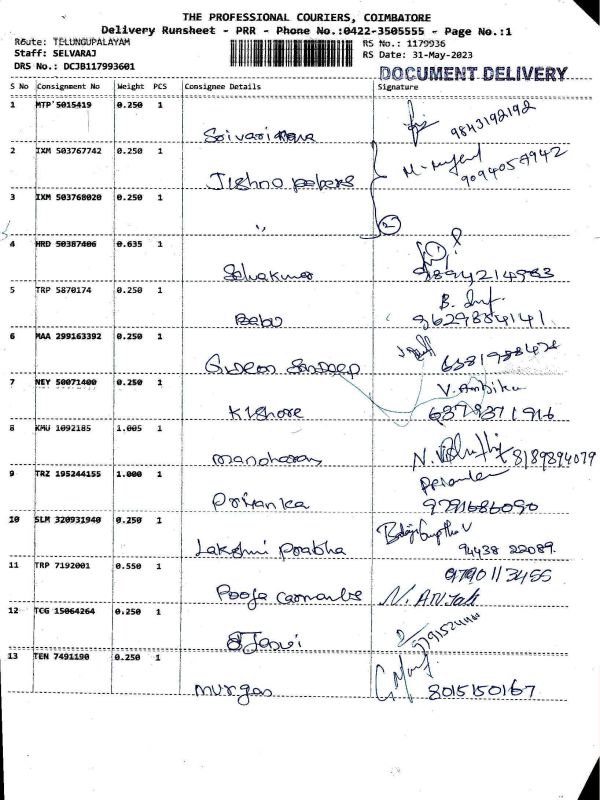 THE PROFESSIONAL COURIERS, COIMBATORE
Delivery Runsheet - PRR - Phone No.:0422-3505555 - Page No.:1
Route: TELUNGUPALAYAM RS No.: 1179936
Staff: SELVARAJ RS Date: 31-May-2023
DRS No.: DCJB117993601
DOCUMENT DELIVERY
S No Consignment No Weight PCS Consignee Details Signature
1 MTP 5015419 0.250 1
9843192192
2 IXM 503767742 0.250 1
Jishno papers
9094054942
3 IXM 503768020 0.250 1
" 2
4 HRD 50387406 0.635 1
Selvakumar
5 TRP 5870174 0.250 1
Babu 9629884141
6 MAA 299163392 0.250 1
Gideon Sandeep
7 NEY 50071400 0.250 1 V. Ambika
Kishore
8 KMU 1092185 1.005 1
manoharan 8189894079
9 TRZ 195244155 1.000 1
Priyanka 9791686090
10 SLM 320931940 0.250 1
Lakshmi Prabha 94438 22089
11 TRP 7192001 0.550 1 9790113455
Pooja
12 TCG 15064264 0.250 1
13 TEN 7491190 0.250 1
murgan 8015150167